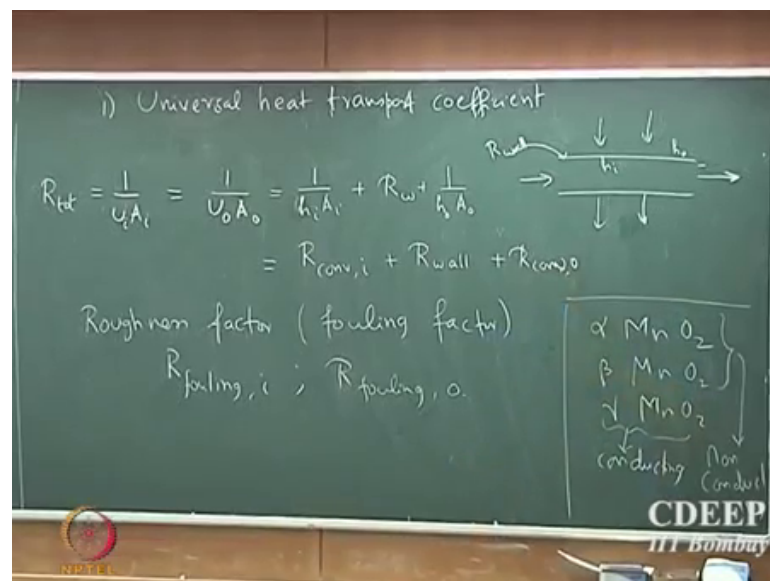 i) Universal heat transport coefficient
R_wall
h_i
h_o
R_tot = 1/U_iA_i = 1/U_oA_o = 1/h_iA_i + R_w + 1/h_oA_o
= R_conv,i + R_wall + R_conv,o
Roughness factor (fouling factor)
R_fouling,i ; R_fouling,o.
α MnO₂
β MnO₂
γ MnO₂
conducting
Non
Conduct
CDEEP
IIT Bombay
NPTEL